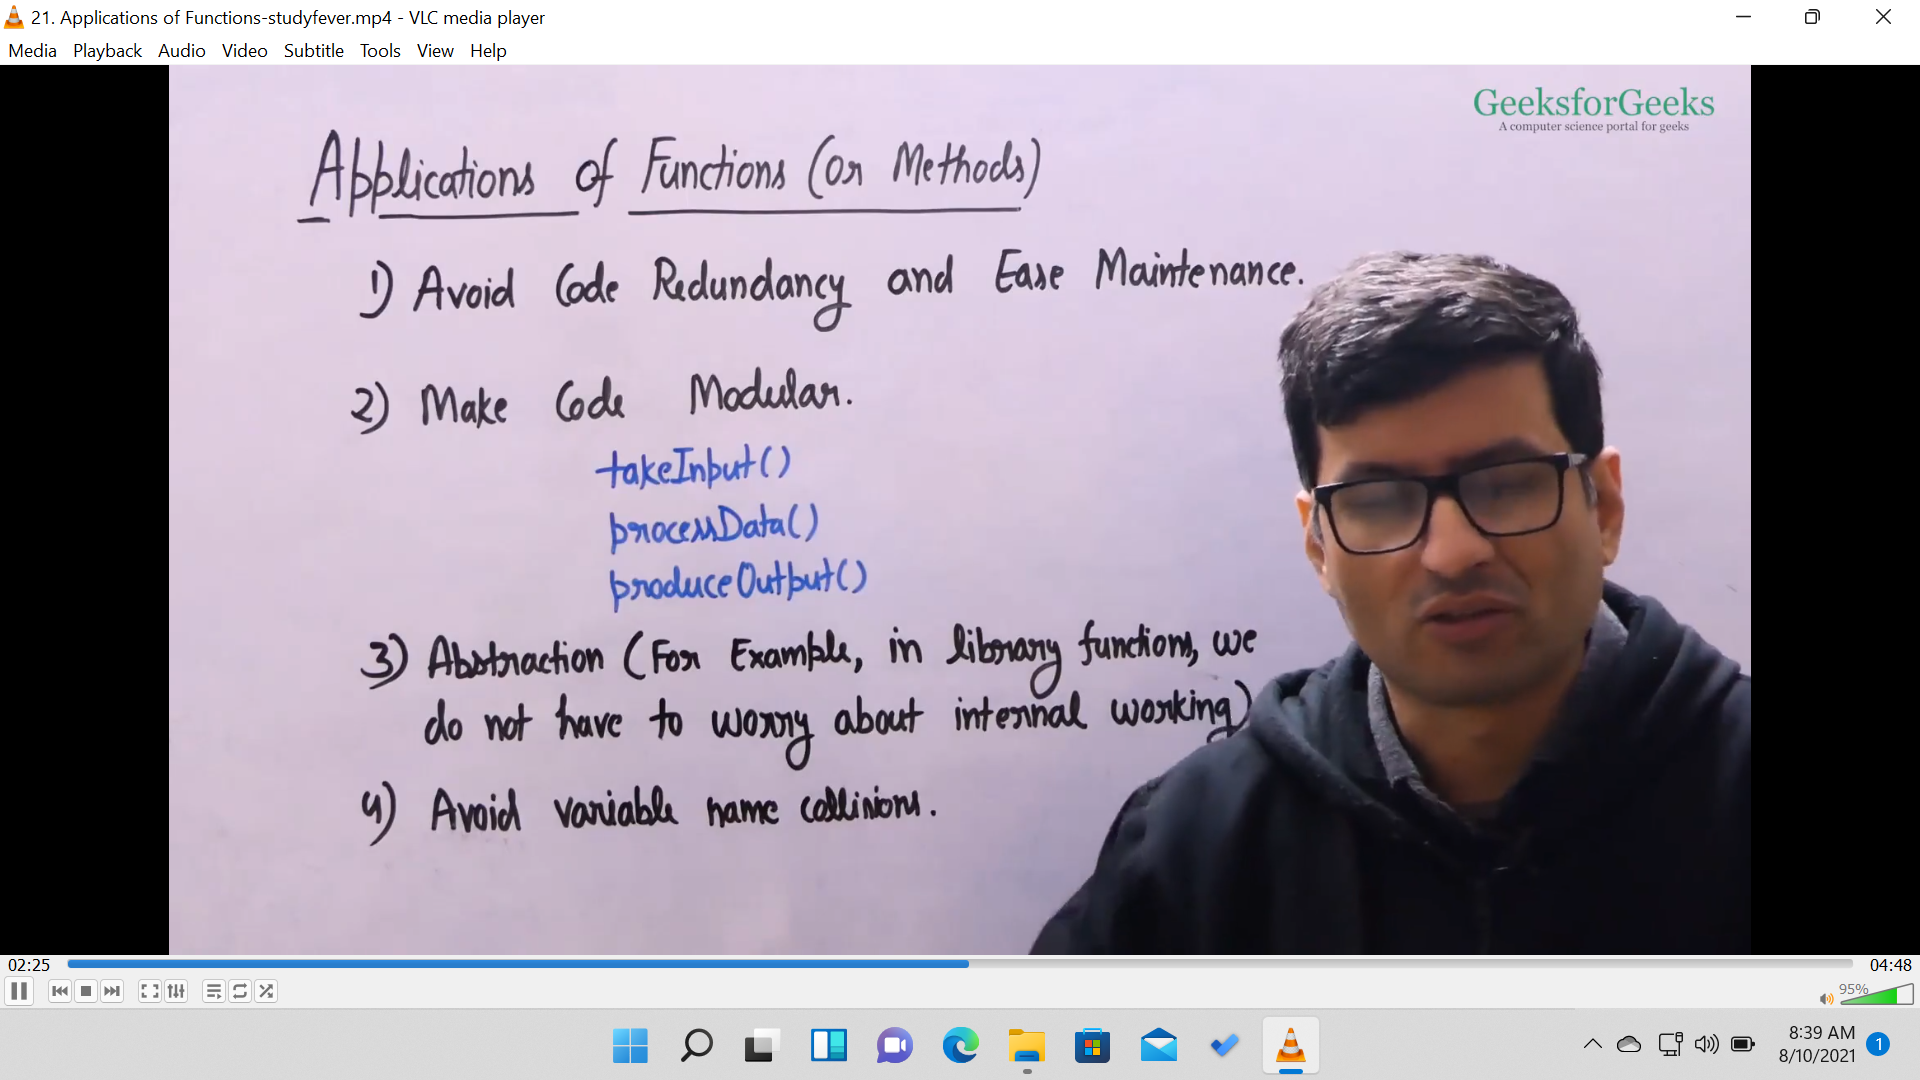 21. Applications of Functions-studyfever.mp4 - VLC media player
Media Playback Audio Video Subtitle Tools View Help
GeeksforGeeks
A computer science portal for geeks
Applications of Functions (or Methods)
1) Avoid Code Redundancy and Ease Maintenance.
2) Make Code Modular.
takeInput()
processData()
produceOutput()
3) Abstraction (For Example, in library functions, we
do not have to worry about internal working)
4) Avoid variable name collisions.
02:25
04:48
95%
8:39 AM
8/10/2021
1